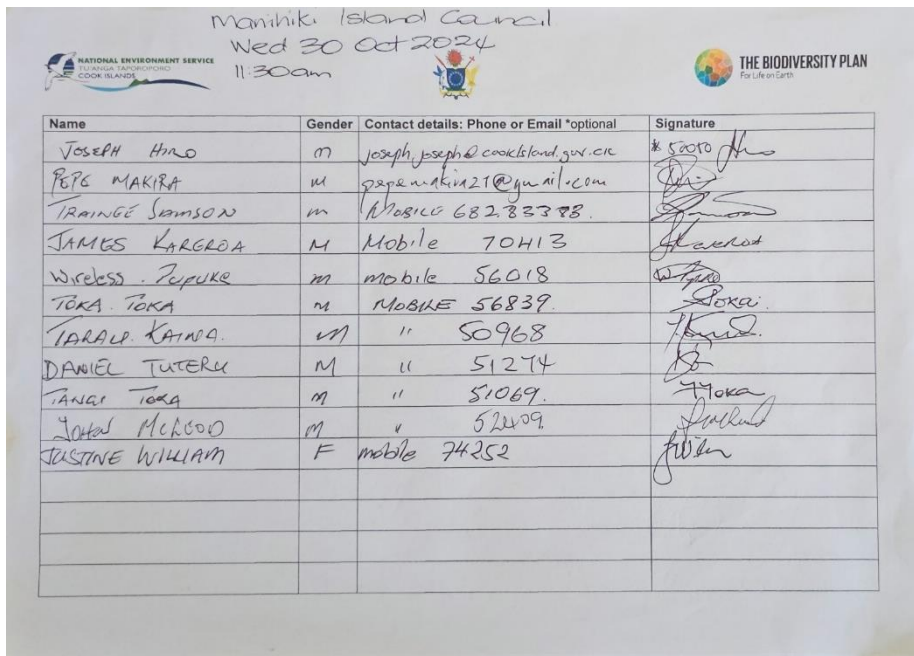 Manihiki Island Council
Wed 30 Oct 2024
11:30am
NATIONAL ENVIRONMENT SERVICE
TU'ANGA TAPOROPORO
COOK ISLANDS
THE BIODIVERSITY PLAN
For Life on Earth
Name Gender Contact details: Phone or Email *optional Signature
JOSEPH HIRO m joseph.joseph@cookisland.gov.ck * 50050
PEPE MAKIRA M pepemakira21@gmail.com
SAMSON m MOBILE
JAMES KAREROA M Mobile 70413
Wireless. Tupuke m mobile 56018
TOKA. TOKA M MOBILE 56839
KAINA. M " 50968
DANIEL TUTERU M " 51274
TANGI TOKA M " 51069. TToka
JOHN MCLEOD m " 52409
JUSTINE WILLIAM F mobile 74252